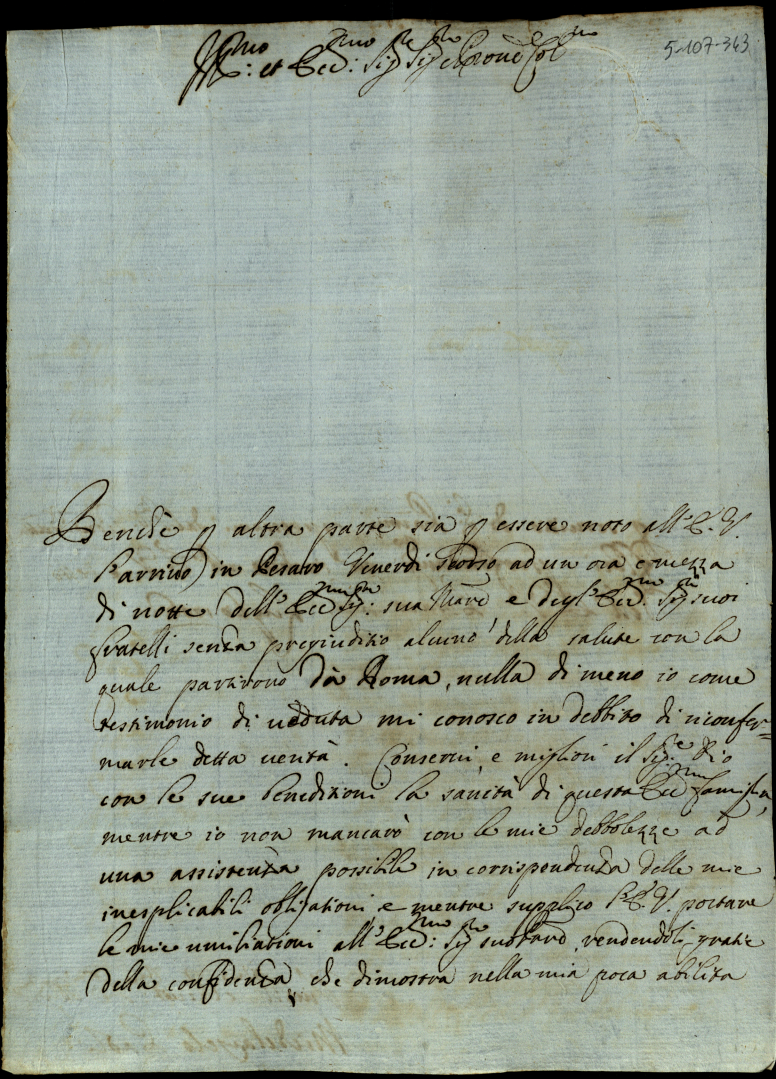 Ill:mo et Ecc:mo Sig.re Sig.r Prone Col.mo
5-107-343
Benche p altra parte sia p essere noto all'E. V.
l'arrivo in Pesaro Venerdi scorso ad un ora e mezza
di notte dell'Ecc:ma Sig:ra sua Mare e degl'Ecc:mi Sig.ri suoi
fratelli senza pregiuditio alcuno della salute con la
quale partirono da Roma, nulla di meno io come
testimonio di veduta mi conosco in debbito di riconfer=
marle detta verità. Conservi, e migliori il Sig:re Dio
con le sue beneditioni la sanità di questa Ecc:ma famiglia,
mentre io non mancarò con le mie debbolezze ad
una assistenza possibile in corrispondenza delle mie
inesplicabili obligationi e mentre supplico l'E. V. portare
le mie umiliationi all'Ecc:mo Sig.r suo Pare, rendendoli gratie
della confidenza, che dimostra nella mia poca abilita